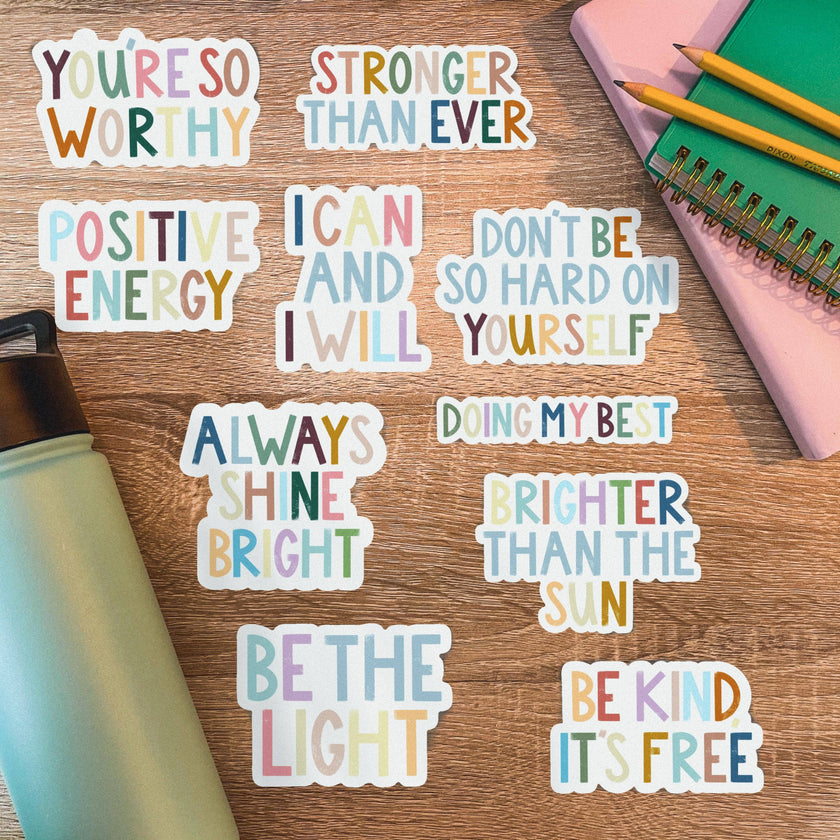 YOU'RE SO
WORTHY
STRONGER
THAN EVER
POSITIVE
ENERGY
I CAN
AND
I WILL
DON'T BE
SO HARD ON
YOURSELF
DOING MY BEST
ALWAYS
SHINE
BRIGHT
BRIGHTER
THAN THE
SUN
BE THE
LIGHT
BE KIND,
IT'S FREE
DIXON